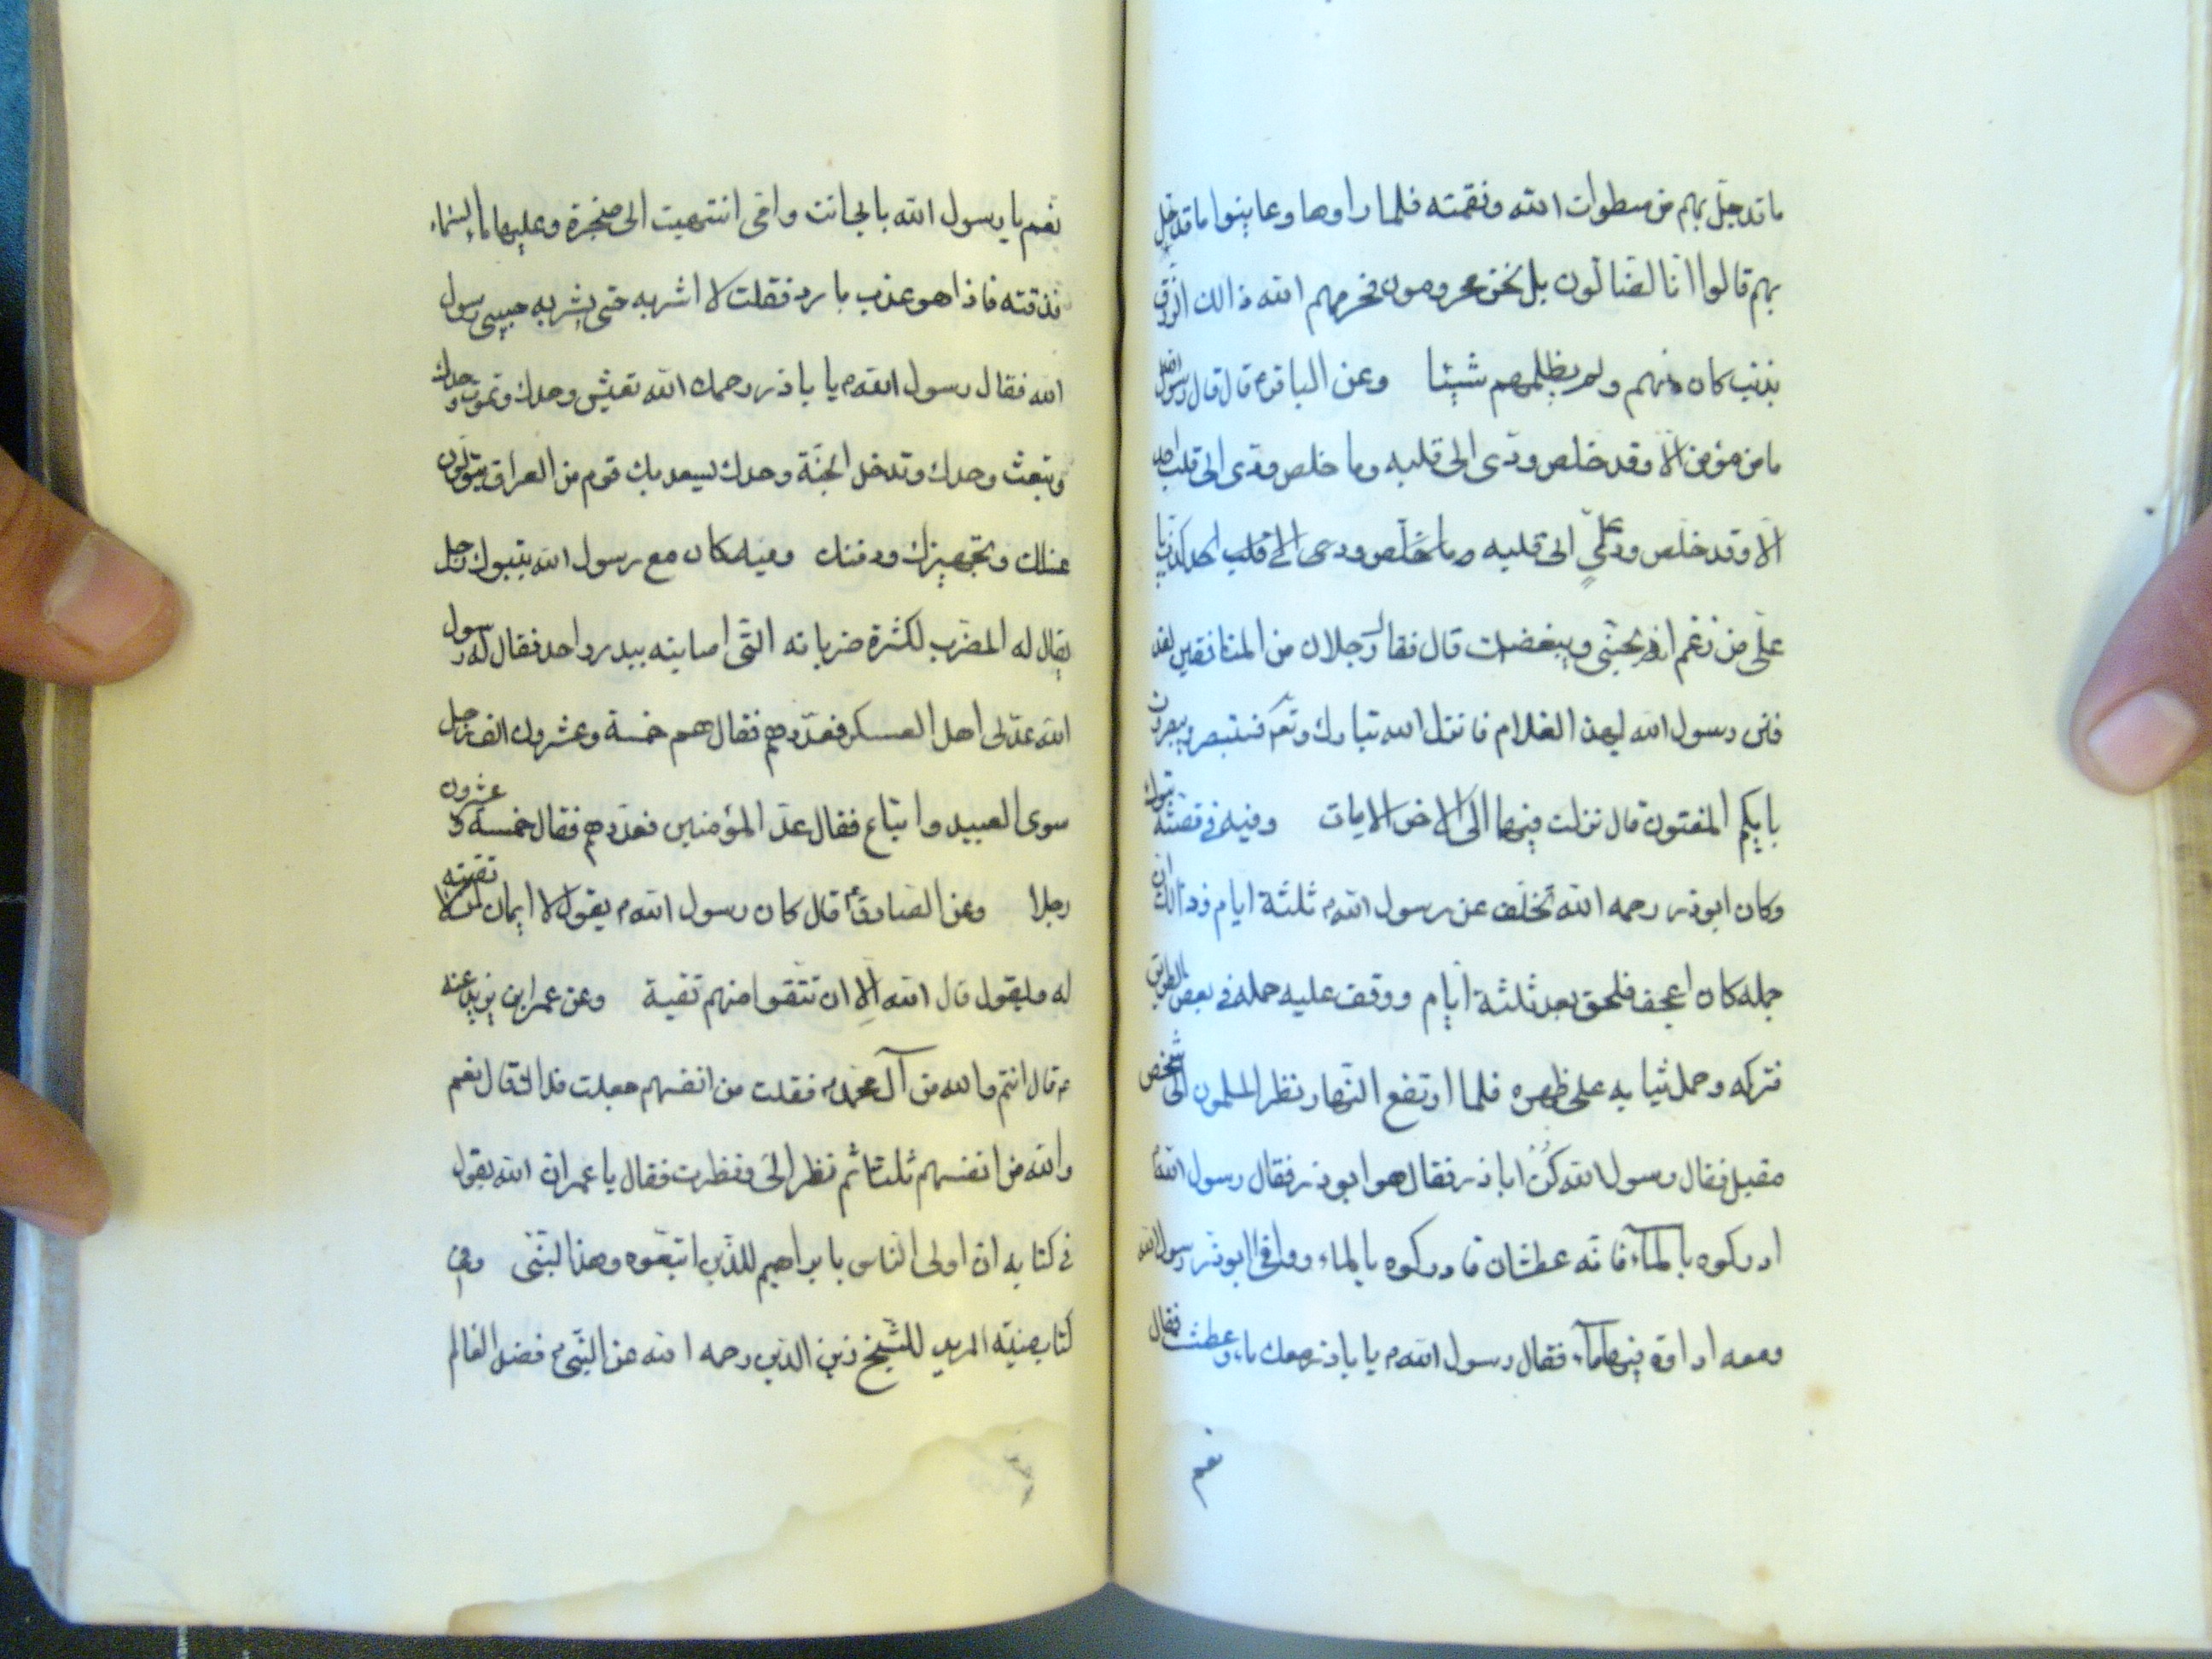 ما قد حل بهم من سطوات الله ونقمته فلما راوها وعاينوا ما قد حل
بهم قالوا انا لضالون بل نحن محرومون فحرمهم الله ذالك الرزق
بذنب كان منهم ولم يظلمهم شيئا وعن الباقر ع قال قال رسول الله
ما من مؤمن الا وقد خلص ودى الى قلبه وما خلص ودى الى قلب احد
الا وقد خلص ود علي الى قلبه وما خلص ودى الى قلب احد كذب يا
علي من زعم انه يحبني ويبغضك قال فقال رجلان من المنافقين لقد
فتن رسول الله بهذا الغلام فانزل الله تبارك وتع فستبصر ويبصرون
بايكم المفتون قال نزلت فيهما الى اخر الايات وفيه في قصة تبوك
وكان ابوذر رحمه الله تخلف عن رسول الله ص ثلثة ايام وذالك ان
جمله كان اعجف فلحق بعد ثلثة ايام ووقف عليه جمله في بعض الطريق
فتركه وحمل ثيابه على ظهره فلما ارتفع النهار نظر المسلمون الى شخص
مقبل فقال رسول الله كن اباذر فقال هو ابوذر فقال رسول الله
ادركوه بالماء فانه عطشان فادركوه بالماء ووافى ابوذر رسول الله
ومعه اداوة فيها ماء فقال رسول الله ص يا باذر معك ماء وعطشت فقال
نعم
نعم يا رسول الله بابي انت وامي انتهيت الى صخرة وعليها ماء السماء
فذقته فاذا هو عذب بارد فقلت لا اشربه حتى يشربه حبيبي رسول
الله فقال رسول الله ص يا باذر رحمك الله تعيش وحدك وتموت وحدك
وتبعث وحدك وتدخل الجنة وحدك ليسعد بك قوم من العراق يتولون
غسلك وتجهيزك ودفنك وفيه كان مع رسول الله بتبوك رجل
يقال له المضرب لكثرة ضرباته التى اصابته ببدر واحد فقال له رسول
الله عد لى اهل العسكر فعددهم فقال هم خمسة وعشرون الف رجل
سوى العبيد واتباع فقال عد المؤمنين فعددهم فقال خمسة وعشرون
رجلا وعن الصادق ع قال كان رسول الله ص يقول لا ايمان لمن لا تقية
له ويقول قال الله الا ان تتقوا منهم تقية وعن عمر ابن يزيد عنه
ع قال انتم والله من آل محمد ص فقلت من انفسهم جعلت فداك قال نعم
والله من انفسهم ثلثا ثم نظر الى ونظرت فقال يا عمر ان الله يقول
في كتابه ان اولى الناس بابراهيم للذين اتبعوه وهذا النبى وفى
كتاب منية المريد للشيخ زين الدين رحمه الله عن النبى ص فضل العالم